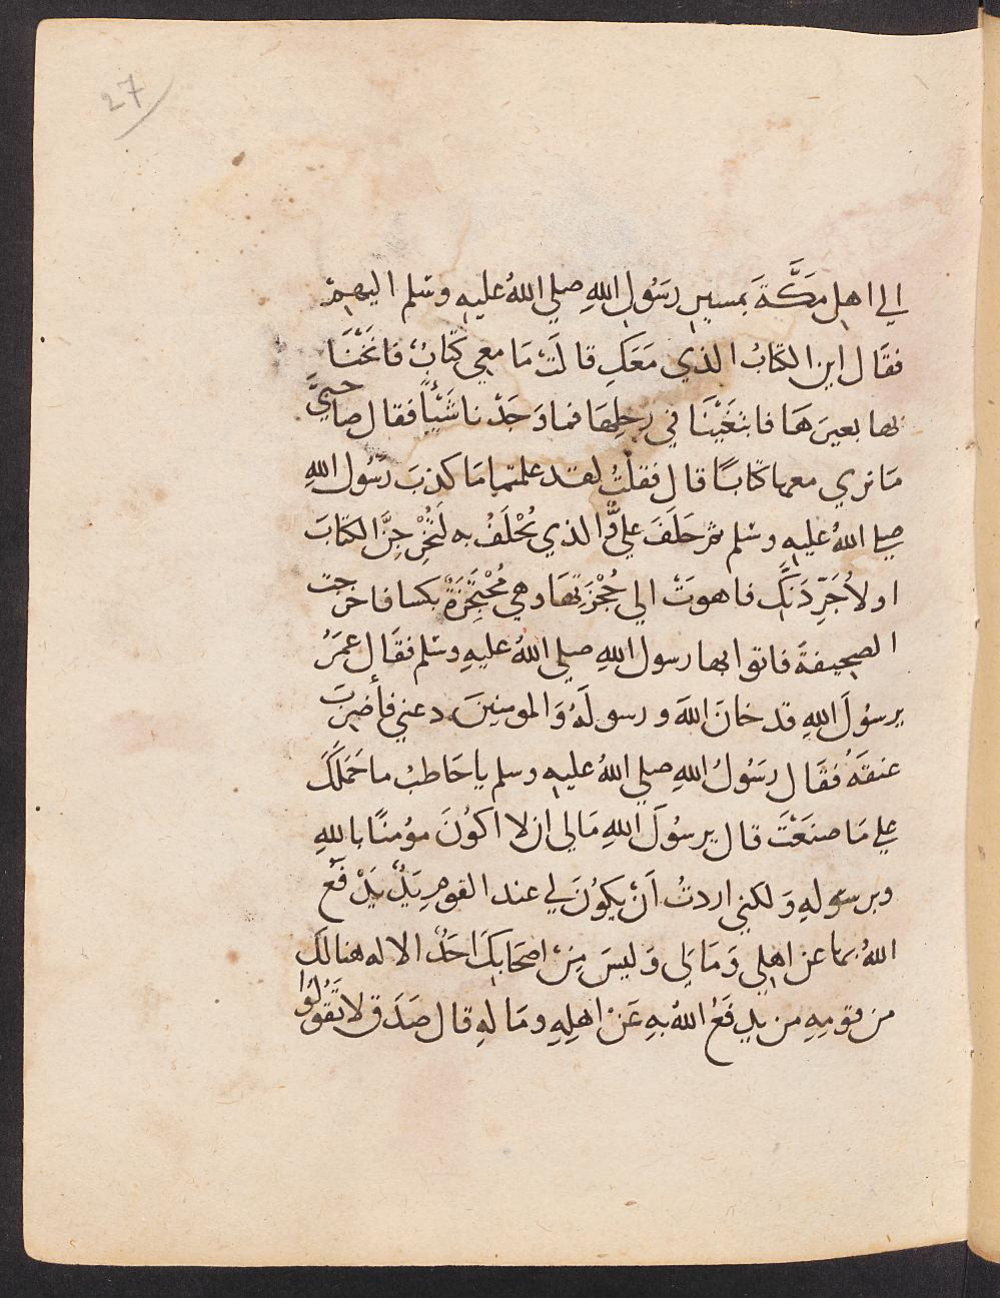 27
الي اهل مَكَّةَ بمسير رسَوُل اللهِ صلي اللهُ عليهِ وسَلم اليهِمْ
فقَال اين الكتابُ الذي مَعَكِ قالَتْ مَا معي كتَابٌ فانَخْنَا
بها بعيرَهَا فابتغَيْنَا في رحلِهَا فما وَجَدْنا شَيْئًا فقال صاحبَيَّ
مَا نري معها كتابًا قال فقلتُ لقد علمتما مَا كذبَ رَسُول اللهِ
صلي اللهُ عليهِ وسَلم ثم حَلَفَ عليٌّ والذي يُحْلَفُ به لَتُخْرِجِنَّ الكتابَ
او لاُجَرِّدَنَّكِ فاهوتْ الي حُجْزَتِهَا وهي مُحْتَجِزَةٌ بكسا فاخرجت
الصحِيفةَ فاتوا بها رسول اللهِ صلي اللهُ عليهِ وسَلم فقَال عمَرُ
يرسُولَ اللهِ قد خانَ اللهَ و رسولَهُ وَالمومنِينَ دعني فأضربَ
عنقَهُ فقَال رسَوُلُ اللهِ صلي اللهُ عليهِ وسلم يا حَاطبُ ما حَمَلَكَ
علي مَا صنَعْتَ قال يرسُولَ اللهِ مَالي ان لا اكوُنَ مؤمنًا باللهِ
وبرسولهِ وَلكني اردتُ اَنْ يكوُنَ لي عند القومِ يَدٌ يَدْفَع
اللهُ بها عن اهلِي وَمَالي وَليسَ مِنْ اصحَابكَ احَدٌ الا له هنالكَ
من قومِهِ من يدفَعُ اللهُ بهِ عَنْ اهلِهِ ومَالهِ قال صَدَق لا تَقُولُوا